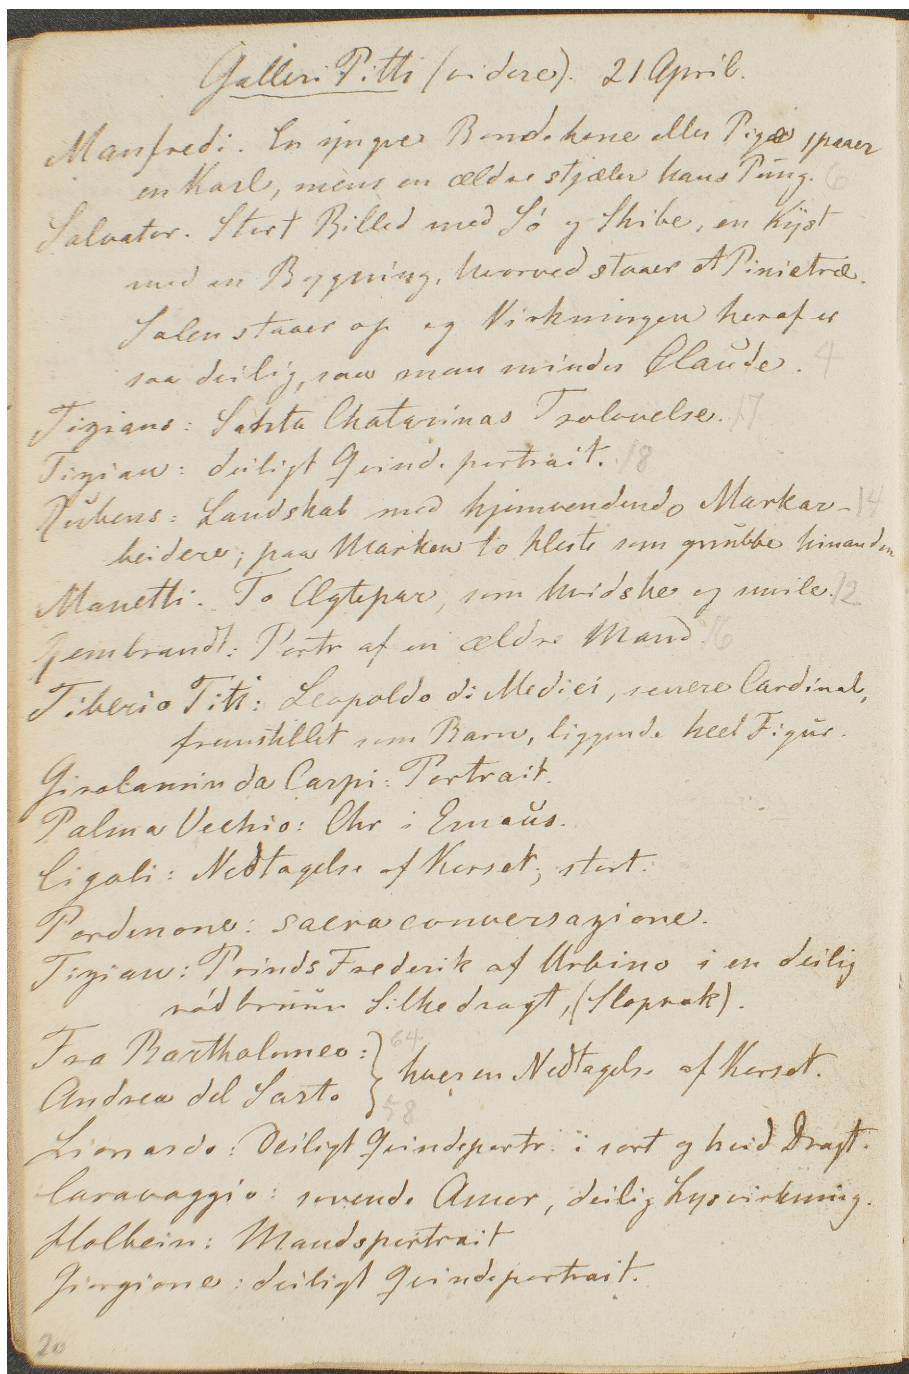 Galleri Pitti (videre). 21 April.
Manfredi. En yngre Bondekone eller Pige spaaer
en Karl, mens en ældre stjæler hans Pung. 6
Salvator. Stort Billed med Sö og Skibe, en Kyst
med en Bygning, hvorved staaer et Pinietræ.
Solen staaer op og Virkningen heraf er
saa deilig, saa man mindes Claude. 4
Tizians: Santa Chatarinas Trolovelse. 17
Tizian: deiligt Qvindeportrait. 18
Rubens: Landskab med hjemvendende Markar- 14
beidere; paa Marken to Heste som gnubbe hinanden
Manetti. To Ægtepar, som hvidske og smile. 12
Rembrandt: Portr af en ældre Mand 16
Tiberio Titi: Leopoldo di Medici, senere Cardinal,
fremstillet som Barn, liggende heel Figur.
Girolamin da Carpi: Portrait.
Palma Vechio: Chr i Emaus.
Cigoli: Nedtagelse af Korset; stort.
Pordenone: sacra conversazione.
Tizian: Prinds Frederik af Urbino i en deilig
rödbruun Silkedragt, (Sloprok).
Fra Bartholomeo: 64
Andrea del Sarto 58 hver en Nedtagelse af Korset.
Lionardo: Deiligt Qvindeportr. i sort og hvid Dragt.
Caravaggio: sovende Amor, deilig Lysvirkning.
Holbein: Mandsportrait
Giorgione: deiligt Qvindeportrait.
20